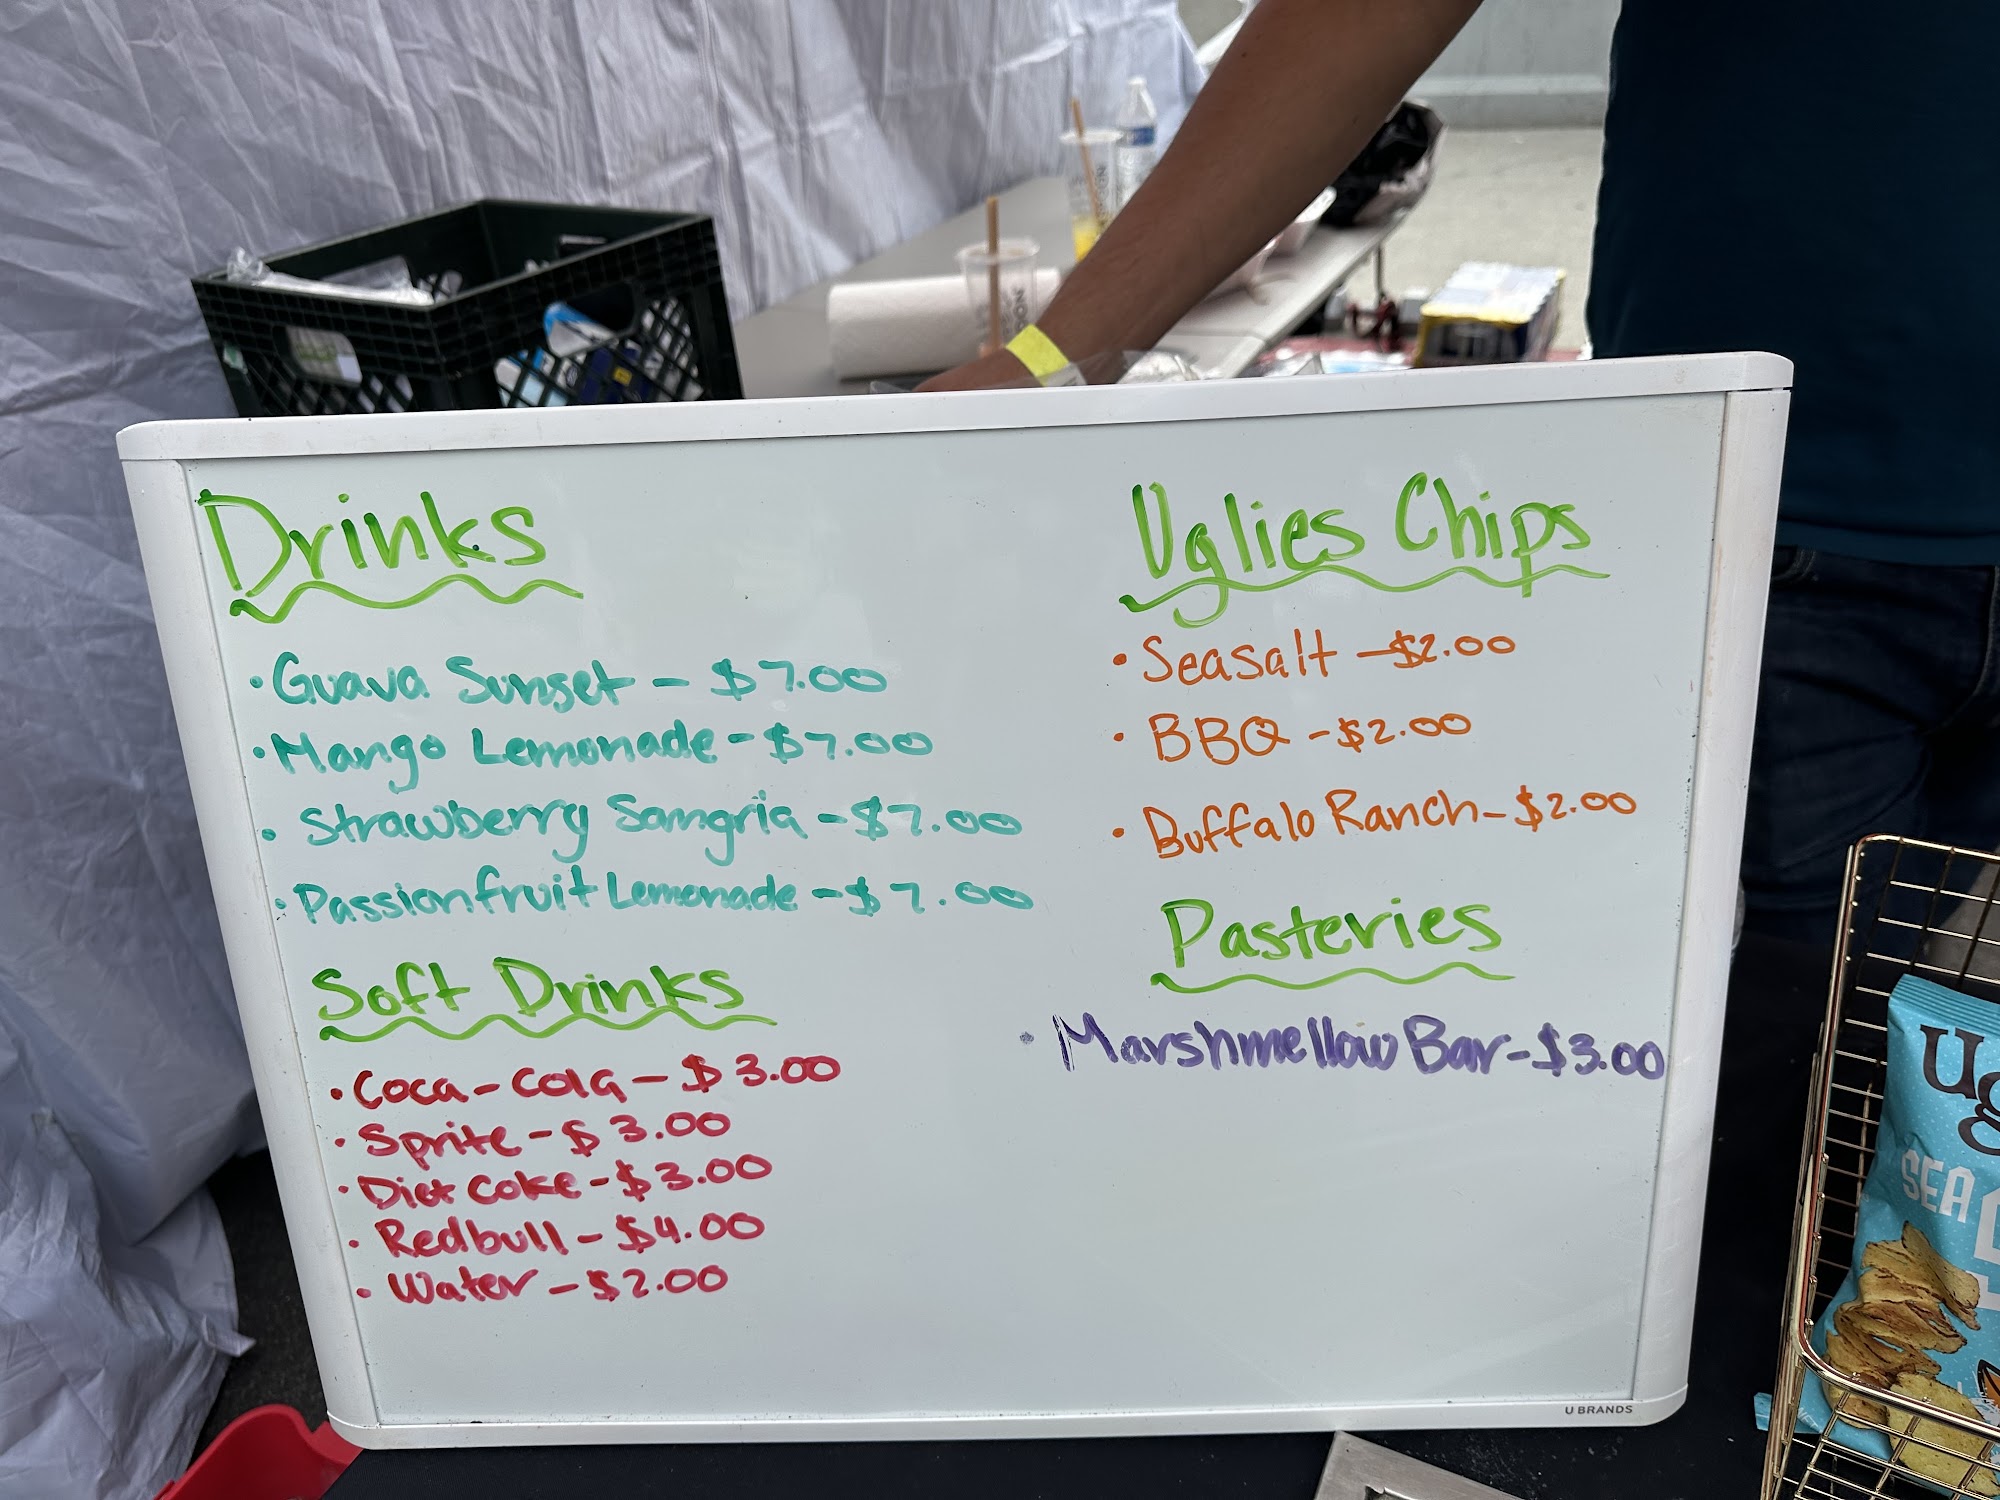 Drinks
• Guava Sunset - $7.00
• Mango Lemonade - $7.00
• Strawberry Sangria - $7.00
• Passionfruit Lemonade - $7.00
Soft Drinks
• Coca-Cola - $3.00
• Sprite - $3.00
• Diet Coke - $3.00
• Redbull - $4.00
• Water - $2.00
Uglies Chips
• Seasalt - $2.00
• BBQ - $2.00
• Buffalo Ranch - $2.00
Pasteries
• Marshmellow Bar - $3.00
U BRANDS
SEA